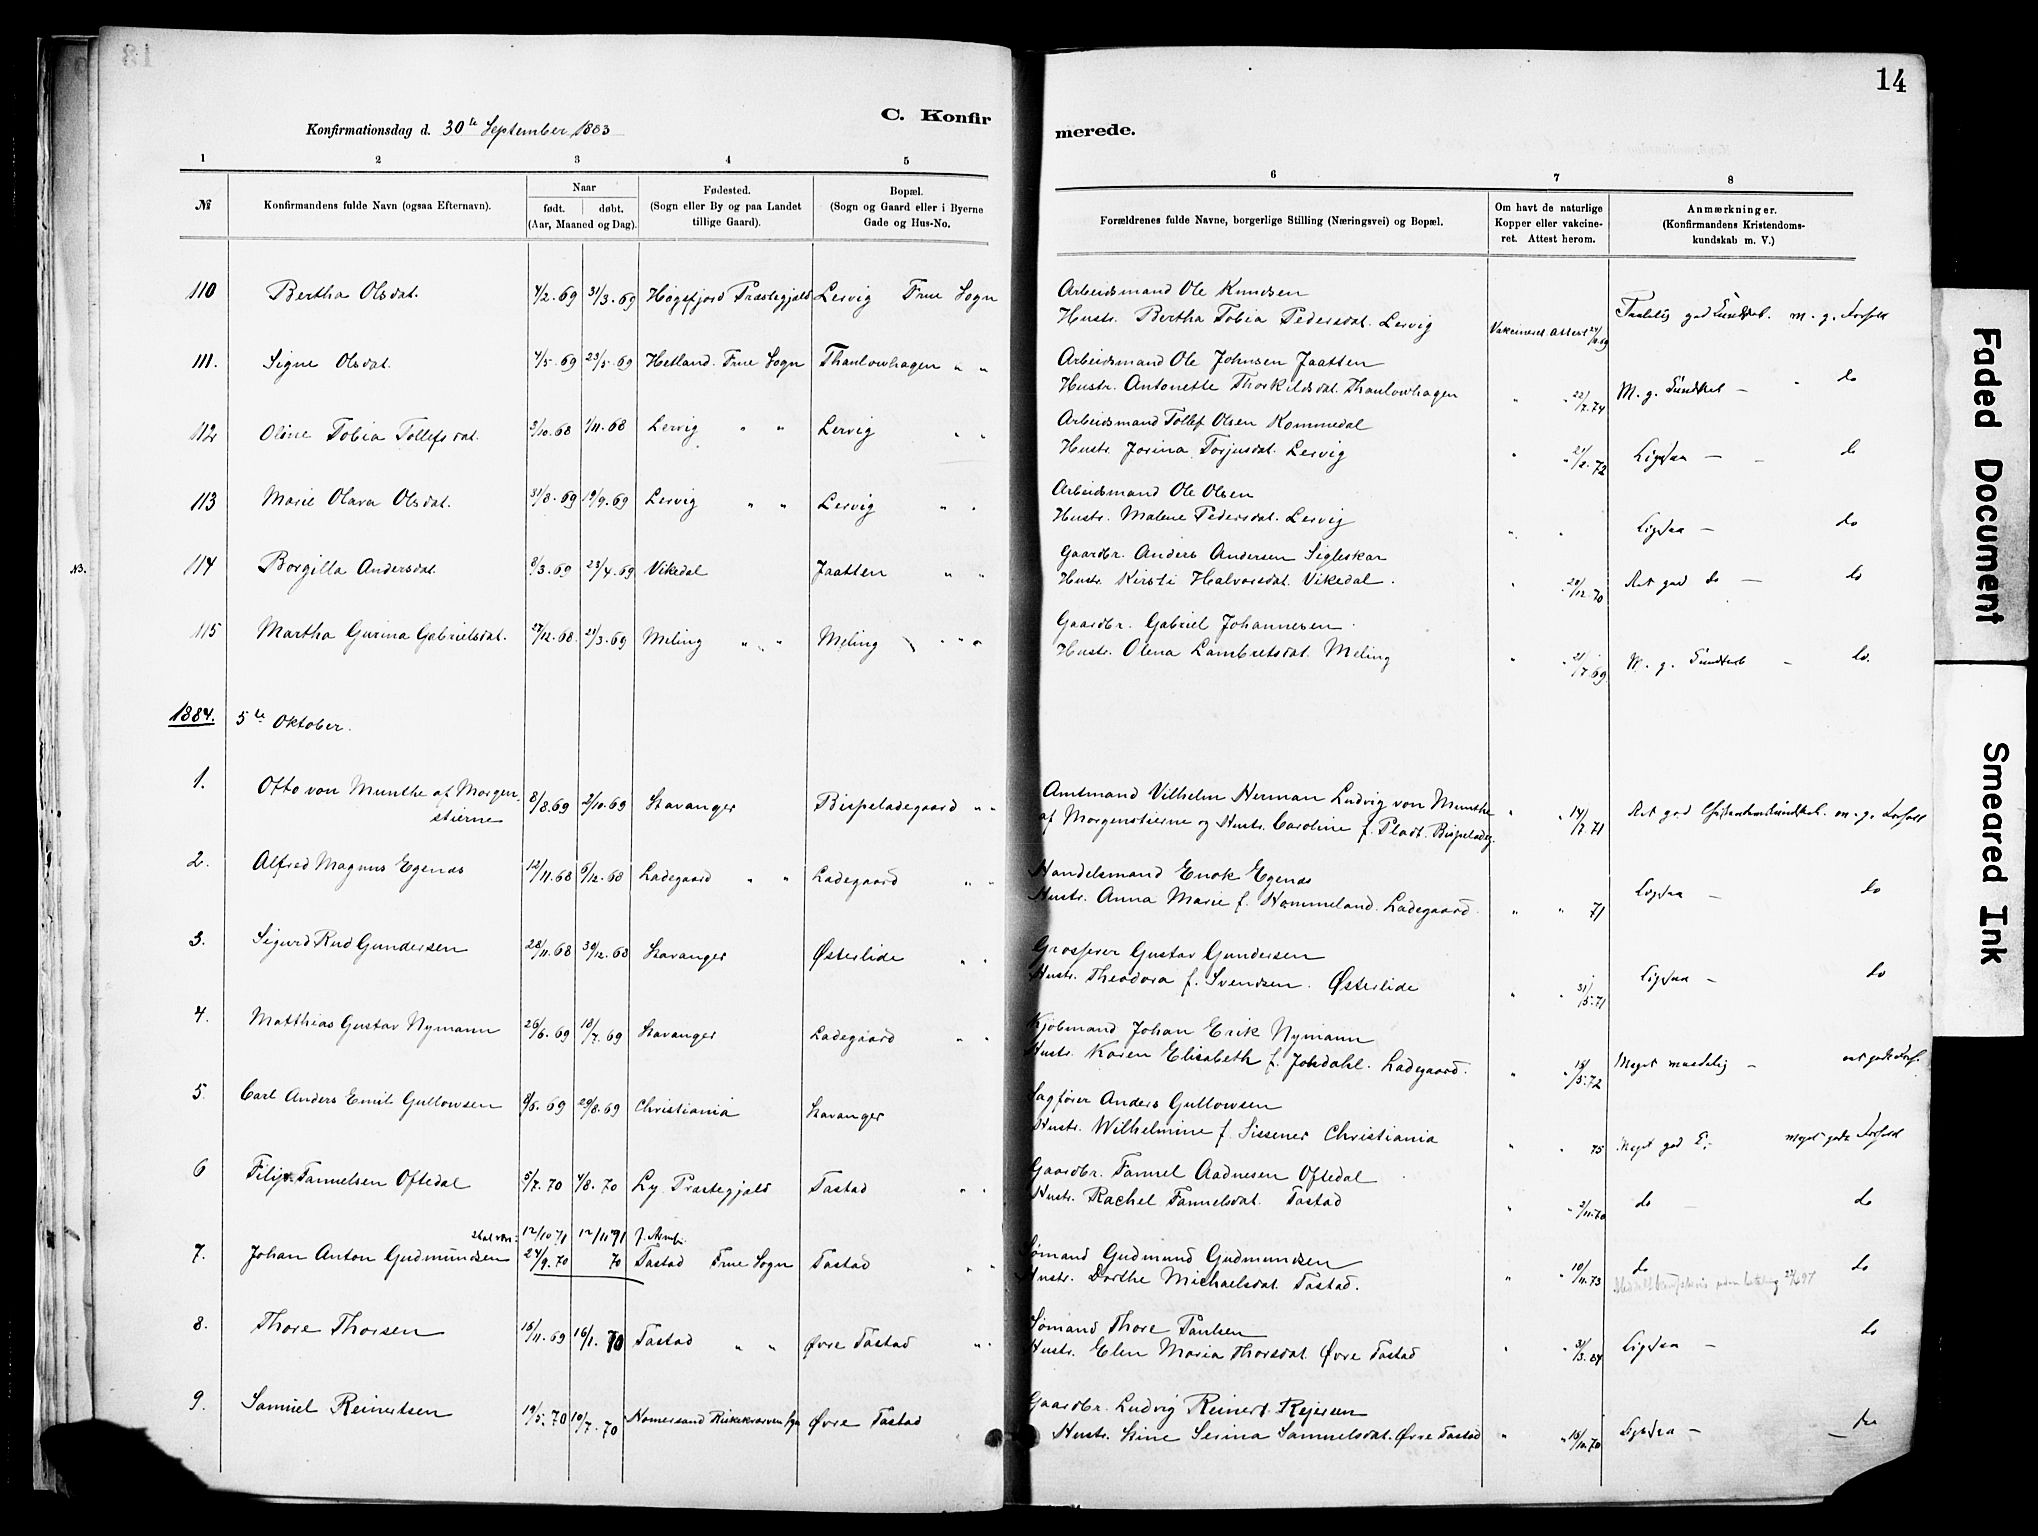 14
Konfirmationsdag d. 30te September 1883
C. Konfir
merede.
1 2 3 4 5 6 7 8
№
Konfirmandens fulde Navn (ogsaa Efternavn).
Naar
født. døbt.
(Aar, Maaned og Dag).
Fødested.
(Sogn eller By og paa Landet
tillige Gaard).
Bopæl.
(Sogn og Gaard eller i Byerne
Gade og Hus-No.
Forældrenes fulde Navne, borgerlige Stilling (Næringsvei) og Bopæl.
Om havt de naturlige
Kopper eller vakcine-
ret. Attest herom.
Anmærkninger.
(Konfirmandens Kristendoms-
kundskab m. V.)
110 Bertha Olsdat. 4/2. 69 31/3. 69 Høgsfjord Præstegjeld Lervig Frue Sogn
Arbeidsmand Ole Knudsen
Hustr. Bertha Tobia Pedersdat. Lervig Vakcineret Attest
111. Signe Olsdat. 4/5. 69 23/5. 69 Hetland Frue Sogn Thaulowhagen " "
Arbeidsmand Ole Johnsen Jaatten
Hustr. Antonette Thorkildsdat. Thaulowhagen " " 22/7. 74 M. g. Kundskab — " do
112 Oline Tobia Tollefsdat. 3/10. 68 1/11. 68 Lervig " " Lervig " "
Arbeidsmand Tollef Olsen Kommedal
Hustr. Jorina Torjusdat. Lervig " " 21/2. 72 Ligesaa — do
113 Marie Olava Olsdat. 31/8. 69 19/9. 69 Lervig " " Lervig " "
Arbeidsmand Ole Olsen
Hustr. Malene Pedersdat. Lervig " " Ligesaa — do
NB. 114 Borgilla Andersdat 8/3. 69 23/4. 69 Vikedal Jaatten " "
Gaardbr. Anders Andersen Sigleskar
Hustr. Kirsti Halvorsdat. Vikedal. " " 20/12. 70 Ret god do — do
115 Martha Gurina Gabrielsdat. 27/12. 68. 21/3. 69 Meling " " Meling " "
Gaardbr. Gabriel Johannesen
Hustr. Olena Lambretsdat. Meling " " 21/7. 69 M. g. Kundskab — do.
1884. 5te Oktober.
1. Otto von Munthe af Morgen-
stierne 8/8. 69 3/10. 69 Stavanger Bispeladegaard " "
Amtmand Vilhelm Herman Ludvig von Munthe
af Morgenstierne og Hustr. Caroline f. Pladt. Bispeladeg. " " 14/7. 71
2. Alfred Magnus Egenæs 12/11. 68 6/12. 68 Ladegaard " " Ladegaard " "
Handelsmand Enok Egenæs
Hustr. Anna Marie f. Hommeland. Ladegaard. " " 71 Ligesaa — do
3. Sigurd Rud Gundersen 28/11. 68 30/12. 68 Stavanger Østerlide " "
Grosserer Gustav Gundersen
Hustr. Theodora f. Svendsen. Østerlide " " 31/5. 71 Ligesaa — do
4. Matthias Gustav Nymann 26/6. 69 18/7. 69 Stavanger Ladegaard " "
Kjøbmand Johan Erik Nymann
Hustr. Karen Elisabeth f. Jondahl. Ladegaard. " " 15/5. 72 Meget maadelig —
5. Carl Anders Emil Gullowsen 8/6. 69 29/8. 69 Christiania Stavanger
Sagfører Anders Gullowsen
Hustr. Wilhelmine f. Sissener Christiania " " 75 Meget god K. meget godt Forhold
6 Filip Samuelsen Oftedal 5/7. 70 4/8. 70 Ly Præstegjeld Tastad " "
Gaardbr. Samuel Aadnesen Oftedal
Hustr. Rachel Samuelsdat. Tastad " " 2/11. 70 do — do
skal være: 12/10 71 12/11 71
7. Johan Anton Gudmundsen 24/9. 70 70 Tastad Frue Sogn Tastad " "
Sømand Gudmund Gudmundsen
Hustr. Dorthe Michaelsdat. Tastad. " " 10/11. 73 do — do
8. Thore Thorsen 15/11. 69 16/1. 70 Tastad " " Øvre Tastad " "
Sømand Thore Paulsen
Hustr. Elen Maria Thorsdat. Øvre Tastad " " 31/3. 84 Ligesaa — do
9. Samuel Reinertsen 19/5. 70 10/7. 70 Øvre Tastad
Gaardbr. Ludvig Reinert Rejersen
Hustr. Stine Serina Samuelsdat. Øvre Tastad " " 15/10. 70 Ligesaa — do
Faded Document
Smeared Ink